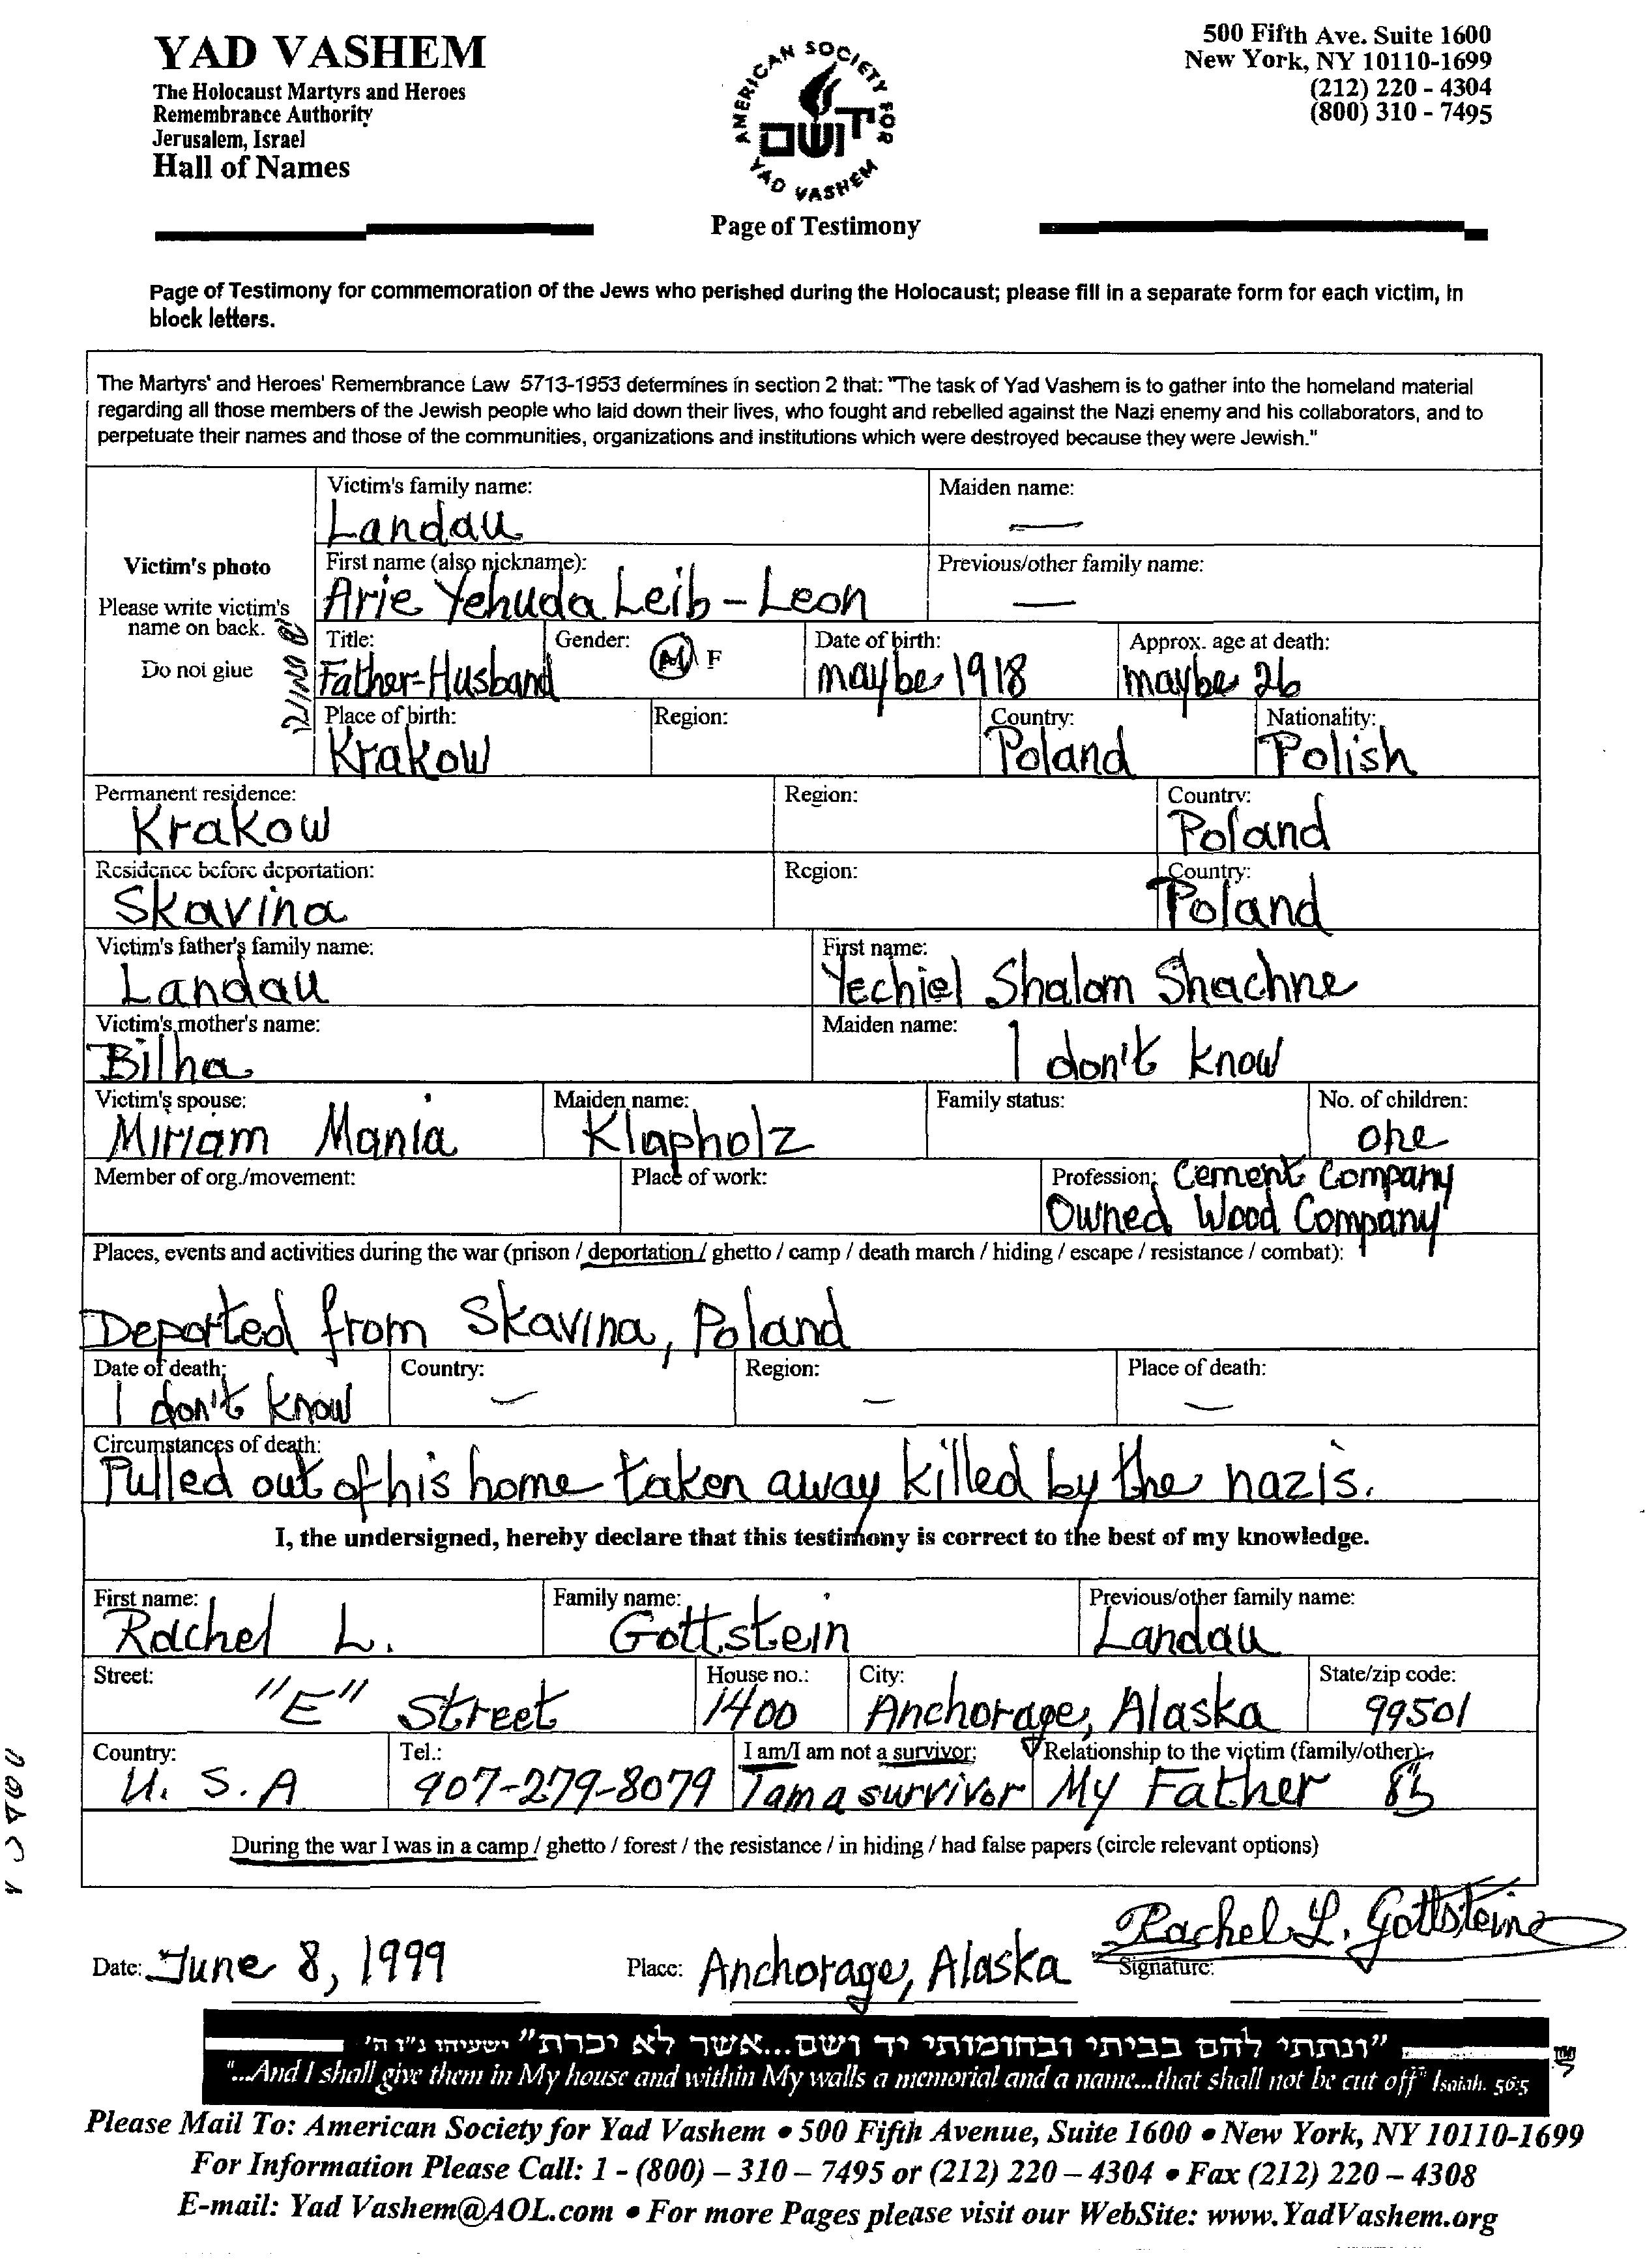 YAD VASHEM
The Holocaust Martyrs and Heroes
Remembrance Authority
Jerusalem, Israel
Hall of Names
AMERICAN SOCIETY FOR
יד ושם
YAD VASHEM
Page of Testimony
500 Fifth Ave. Suite 1600
New York, NY 10110-1699
(212) 220 - 4304
(800) 310 - 7495
Page of Testimony for commemoration of the Jews who perished during the Holocaust; please fill in a separate form for each victim, in
block letters.
The Martyrs' and Heroes' Remembrance Law 5713-1953 determines in section 2 that: "The task of Yad Vashem is to gather into the homeland material
regarding all those members of the Jewish people who laid down their lives, who fought and rebelled against the Nazi enemy and his collaborators, and to
perpetuate their names and those of the communities, organizations and institutions which were destroyed because they were Jewish."
Victim's photo
Please write victim's
name on back.
Do not glue
Victim's family name: Maiden name:
Landau —
First name (also nickname): Previous/other family name:
Arie Yehuda Leib - Leon —
Title: Gender: M F Date of birth: Approx. age at death:
Father-Husband maybe 1918 maybe 26
Place of birth: Region: Country: Nationality:
Krakow Poland Polish
Permanent residence: Region: Country:
Krakow Poland
Residence before deportation: Region: Country:
Skavina Poland
Victim's father's family name: First name:
Landau Yechiel Shalom Shachne
Victim's mother's name: Maiden name:
Bilha I don't know
Victim's spouse: Maiden name: Family status: No. of children:
Miriam Mania Klapholz one
Member of org./movement: Place of work: Profession: Cement Company
Owned Wood Company
Places, events and activities during the war (prison / deportation / ghetto / camp / death march / hiding / escape / resistance / combat):
Deported from Skavina, Poland
Date of death: Country: Region: Place of death:
I don't know — — —
Circumstances of death:
Pulled out of his home taken away killed by the nazis.
I, the undersigned, hereby declare that this testimony is correct to the best of my knowledge.
First name: Family name: Previous/other family name:
Rachel L. Gottstein Landau
Street: House no.: City: State/zip code:
"E" Street 1400 Anchorage, Alaska 99501
Country: Tel.: I am/I am not a survivor: Relationship to the victim (family/other):
U. S. A 907-279-8079 I am a survivor My Father
During the war I was in a camp / ghetto / forest / the resistance / in hiding / had false papers (circle relevant options)
Rachel L. Gottstein
Date: June 8, 1999 Place: Anchorage, Alaska Signature:
"ונתתי להם בביתי ובחומותי יד ושם...אשר לא יכרת" ישעיהו נ"ו ה'
"...And I shall give them in My house and within My walls a memorial and a name...that shall not be cut off" Isaiah. 56:5
Please Mail To: American Society for Yad Vashem • 500 Fifth Avenue, Suite 1600 • New York, NY 10110-1699
For Information Please Call: 1 - (800) – 310 – 7495 or (212) 220 – 4304 • Fax (212) 220 – 4308
E-mail: Yad Vashem@AOL.com • For more Pages please visit our WebSite: www.YadVashem.org